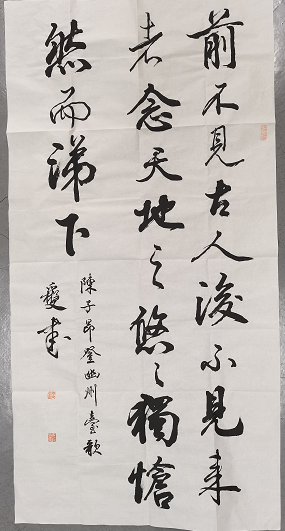 前不見古人後不見来
者念天地之悠々獨愴
然而涕下
陳子昂登幽州臺歌